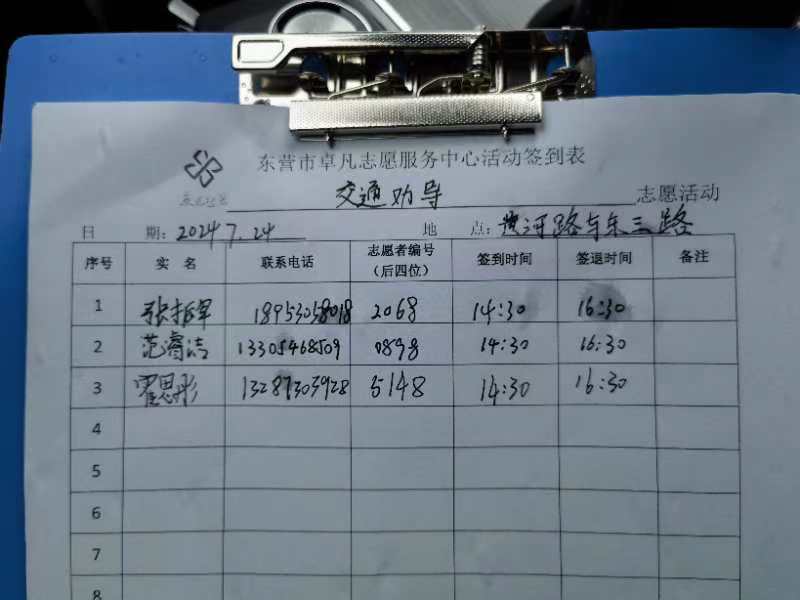 东营市卓凡志愿服务中心活动签到表
交通劝导 志愿活动
日 期: 2024 7.24 地 点: 黄河路与东三路
序号 实 名 联系电话 志愿者编号(后四位) 签到时间 签退时间 备注
1 张 18953058018 2068 14:30 16:30
2 范睿洁 13305468509 0898 14:30 16:30
3 霍思彤 13287303928 5148 14:30 16:30
4
5
6
7
8